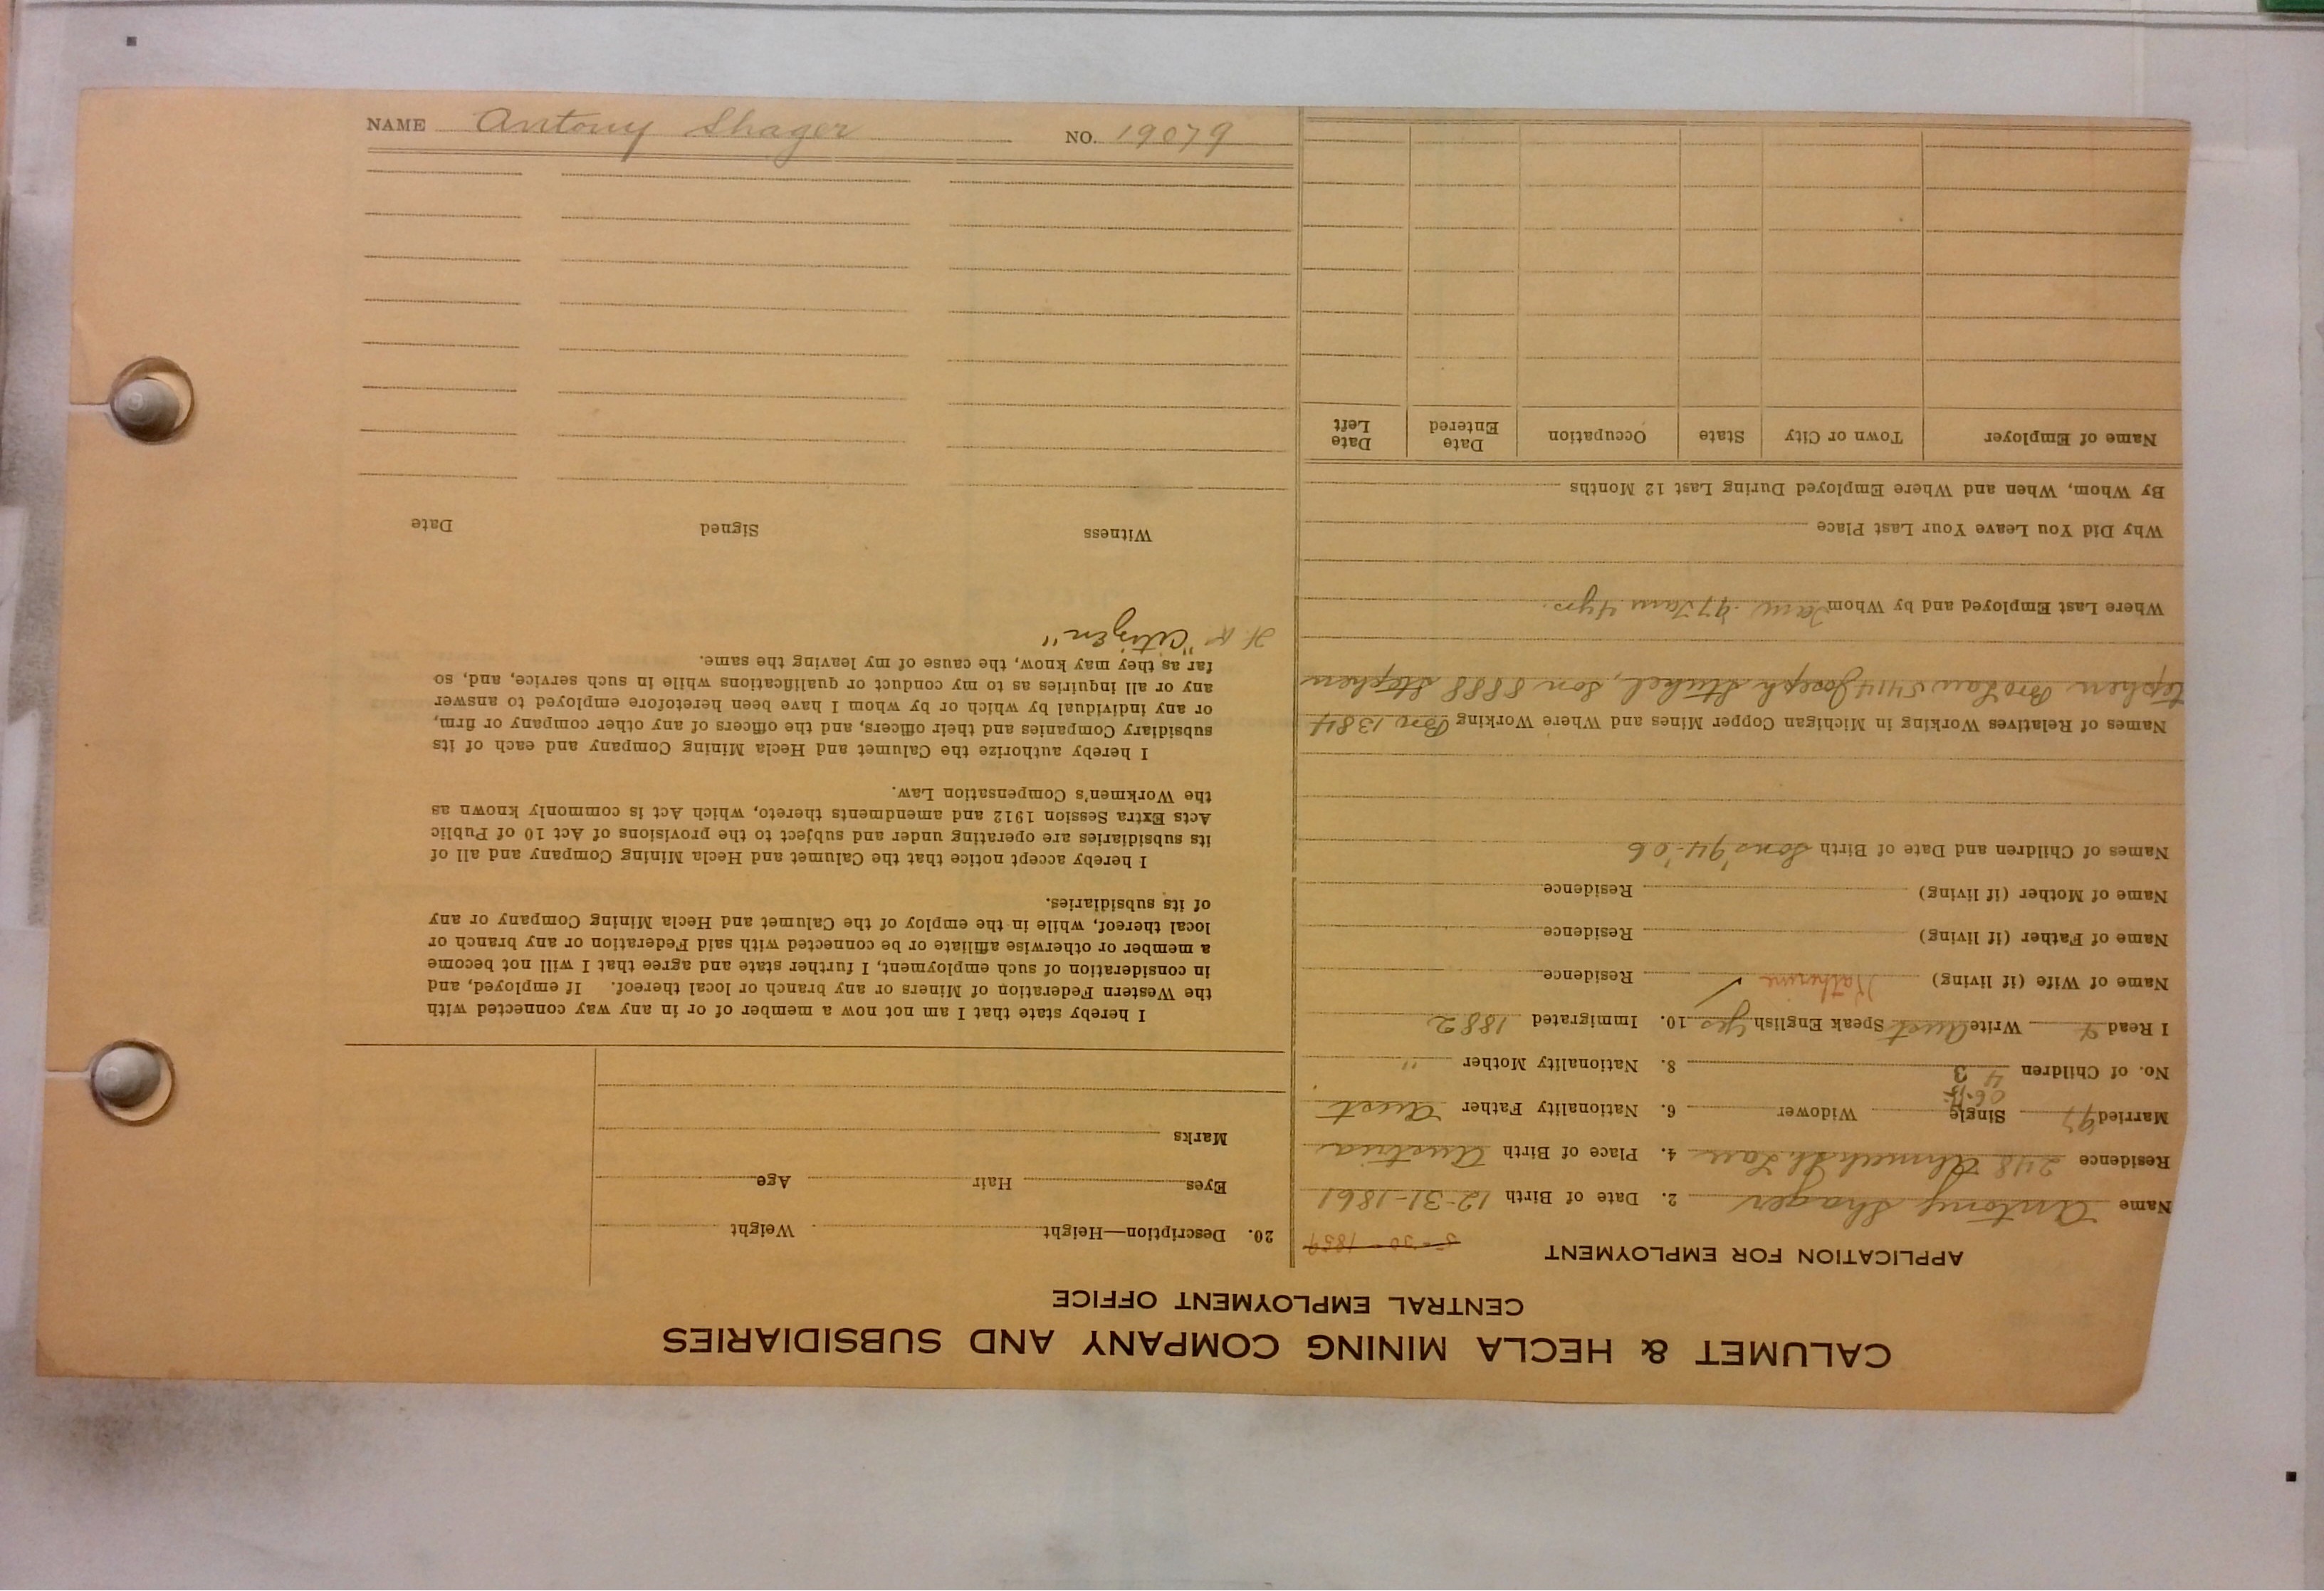 CALUMET & HECLA MINING COMPANY AND SUBSIDIARIES
CENTRAL EMPLOYMENT OFFICE
APPLICATION FOR EMPLOYMENT
5-30-1859
Name Antony Shager 2. Date of Birth 12-31-1861
Residence 248 Ahmeek St. Lau 4. Place of Birth Austria
Married 97 Single Widower 6. Nationality Father Aust
06-13-
No. of Children 4 3 8. Nationality Mother "
I Read Write Aust Speak English Yes 10. Immigrated 1882
Name of Wife (if living) Katherine Residence
Name of Father (if living) Residence
Name of Mother (if living) Residence
Names of Children and Date of Birth Sons '94-'06
Names of Relatives Working in Michigan Copper Mines and Where Working Bro 1384
tephen Bro Law 5414 Joseph Stukel, Son 8888 Stephen
Where Last Employed and by Whom Tam. '97 Tam 4 yrs.
Why Did You Leave Your Last Place
By Whom, When and Where Employed During Last 12 Months
Name of Employer Town or City State Occupation Date Entered Date Left
20. Description—Height Weight
Eyes Hair Age
Marks
I hereby state that I am not now a member of or in any way connected with
the Western Federation of Miners or any branch or local thereof. If employed, and
in consideration of such employment, I further state and agree that I will not become
a member or otherwise affiliate or be connected with said Federation or any branch or
local thereof, while in the employ of the Calumet and Hecla Mining Company or any
of its subsidiaries.
I hereby accept notice that the Calumet and Hecla Mining Company and all of
its subsidiaries are operating under and subject to the provisions of Act 10 of Public
Acts Extra Session 1912 and amendments thereto, which Act is commonly known as
the Workmen's Compensation Law.
I hereby authorize the Calumet and Hecla Mining Company and each of its
subsidiary Companies and their officers, and the officers of any other company or firm,
or any individual by which or by whom I have been heretofore employed to answer
any or all inquiries as to my conduct or qualifications while in such service, and, so
far as they may know, the cause of my leaving the same.
"Citizen"
Witness Signed Date
NAME Antony Shager NO. 19079